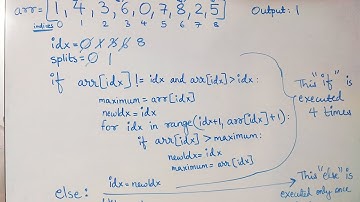 arr = [1, 4, 3, 6, 0, 7, 8, 2, 5]
Output: 1
indices 0 1 2 3 4 5 6 7 8
idx = 0 1 3 6 8
splits = 0 1
if arr[idx] != idx and arr[idx] > idx:
maximum = arr[idx]
newIdx = idx
for idx in range(idx+1, arr[idx]+1):
if arr[idx] > maximum:
newIdx = idx
maximum = arr[idx]
idx = newIdx
else:
This "if" is
executed
4 times
This "else" is
executed only once